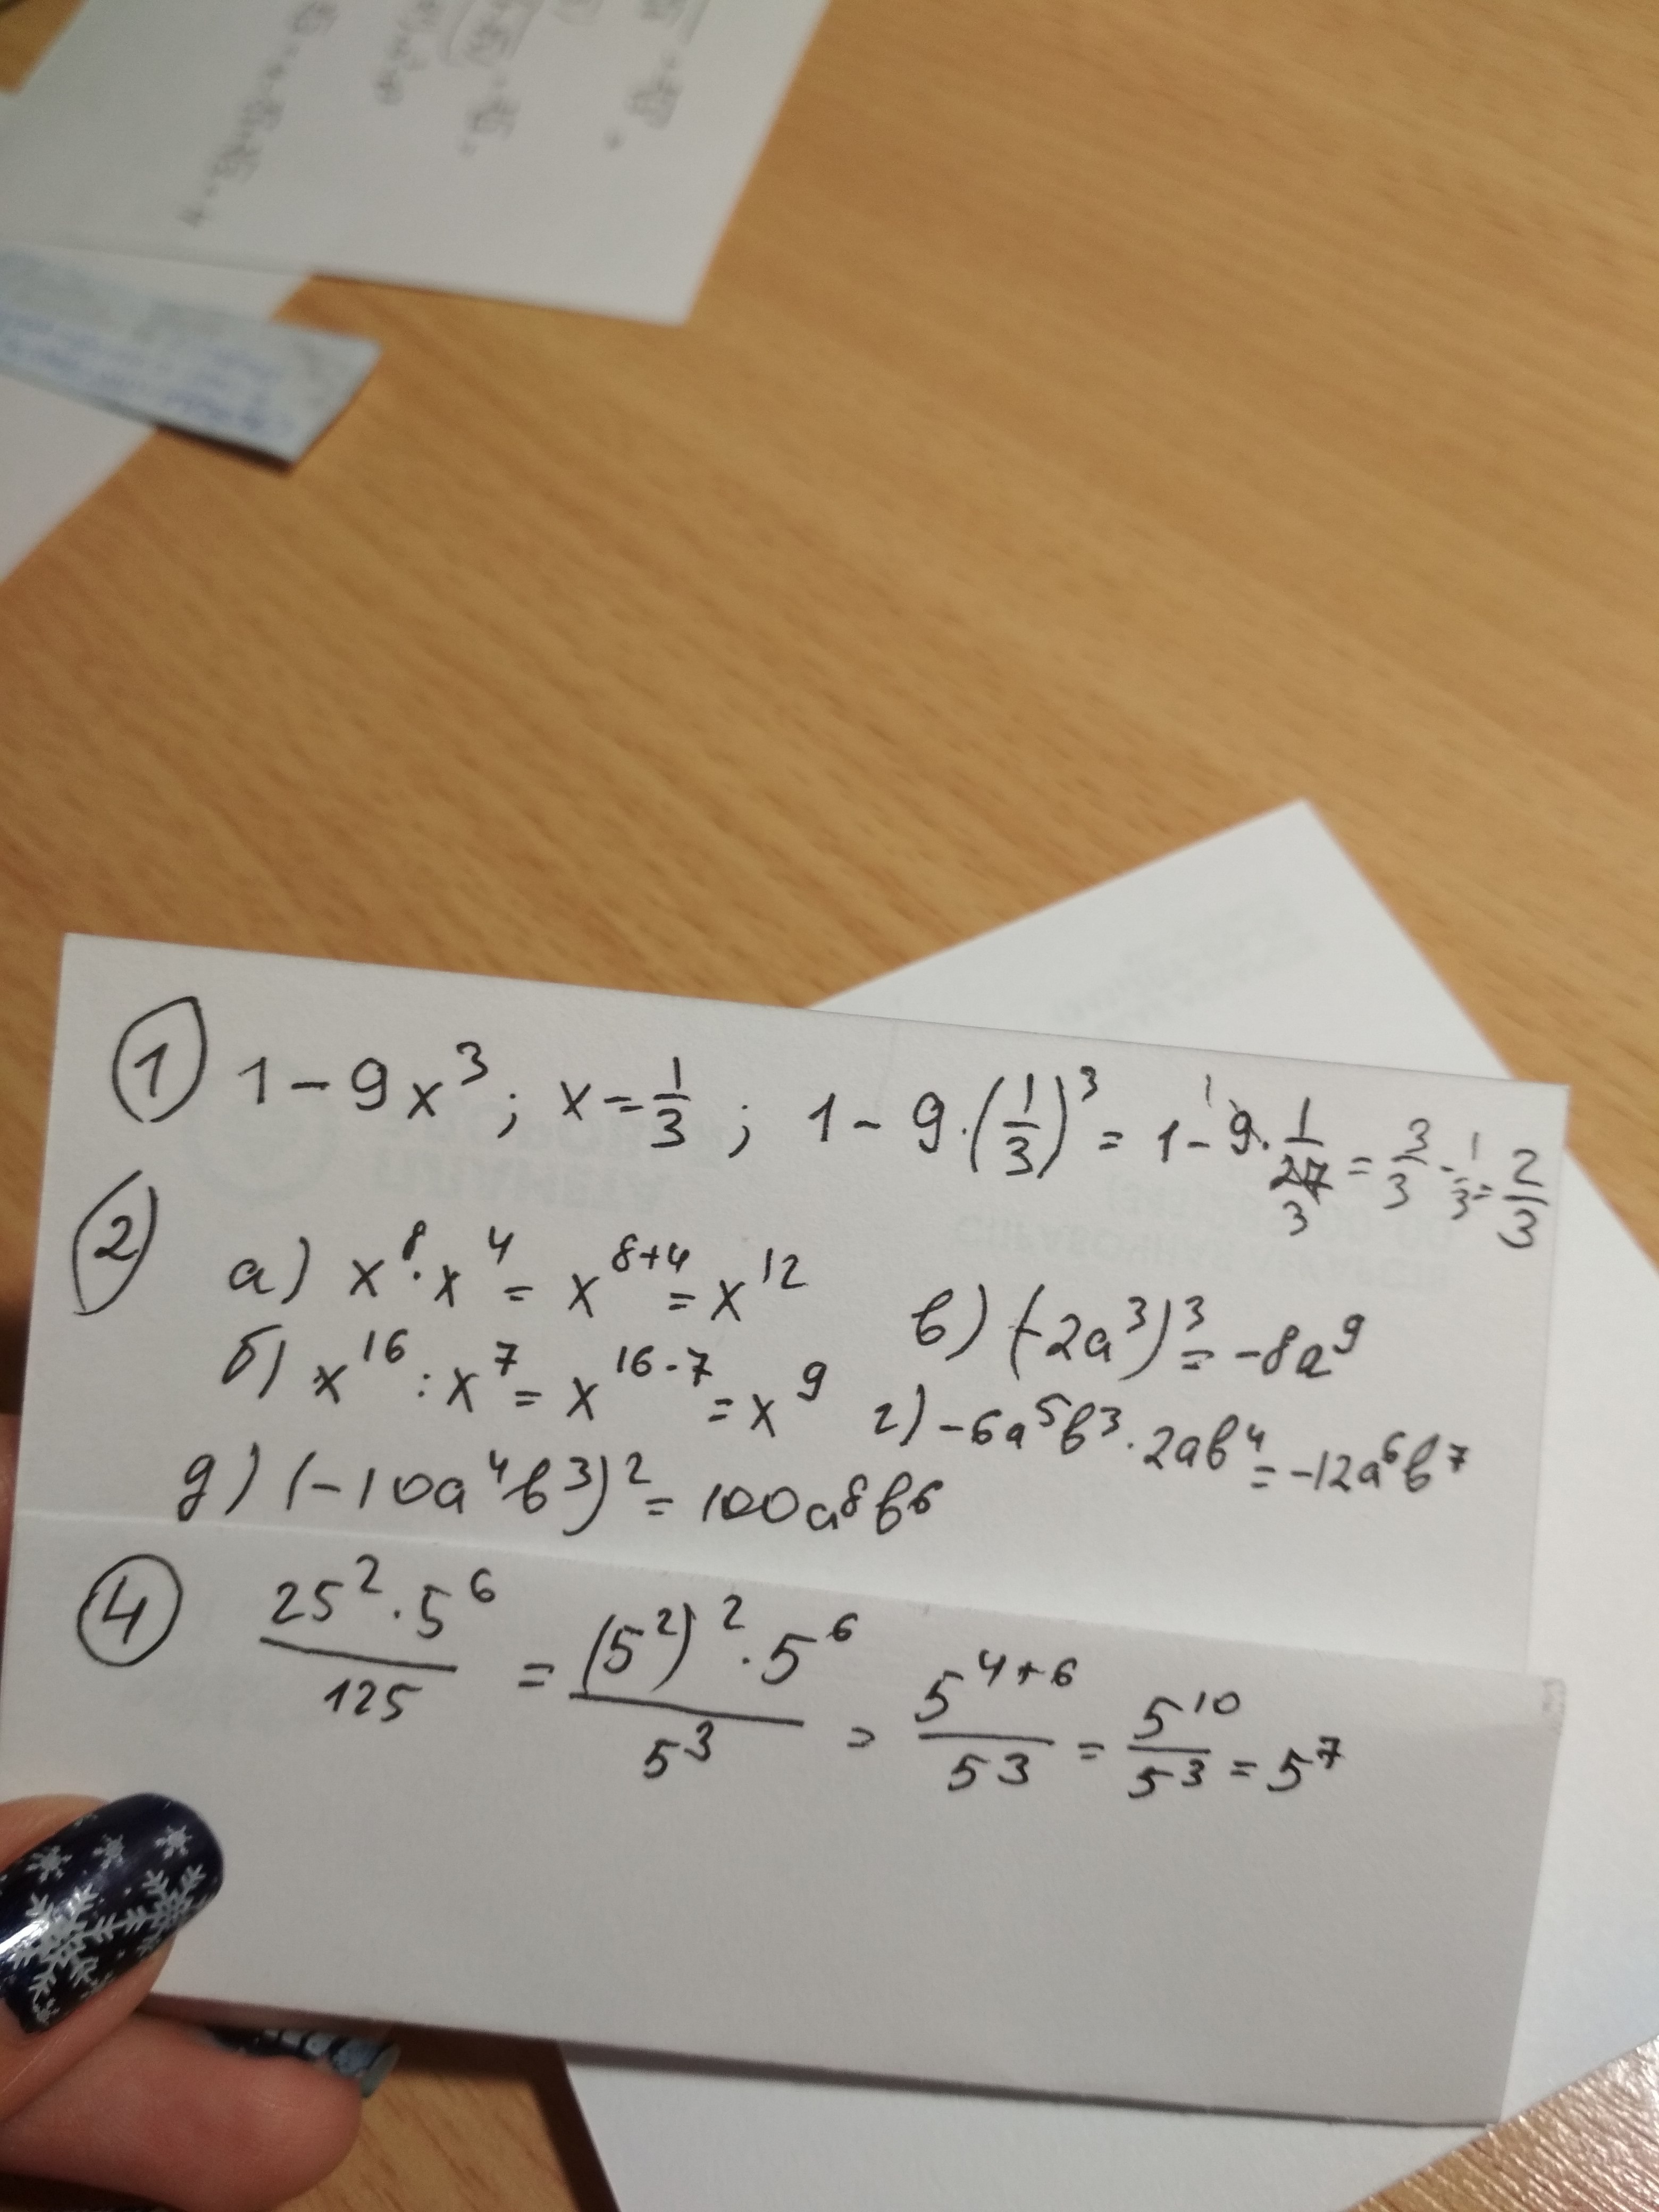 ① 1 - 9x³; x = 1/3; 1 - 9·(1/3)³ = 1 - 9·1/27 = 3/3 - 1/3 = 2/3
②
а) x⁸·x⁴ = x⁸⁺⁴ = x¹²
в) (-2a³)³ = -8a⁹
б) x¹⁶ : x⁷ = x¹⁶⁻⁷ = x⁹
г) -6a⁵b³·2ab⁴ = -12a⁶b⁷
д) (-10a⁴b³)² = 100a⁸b⁶
④ 25²·5⁶/125 = (5²)²·5⁶/5³ = 5⁴⁺⁶/5³ = 5¹⁰/5³ = 5⁷